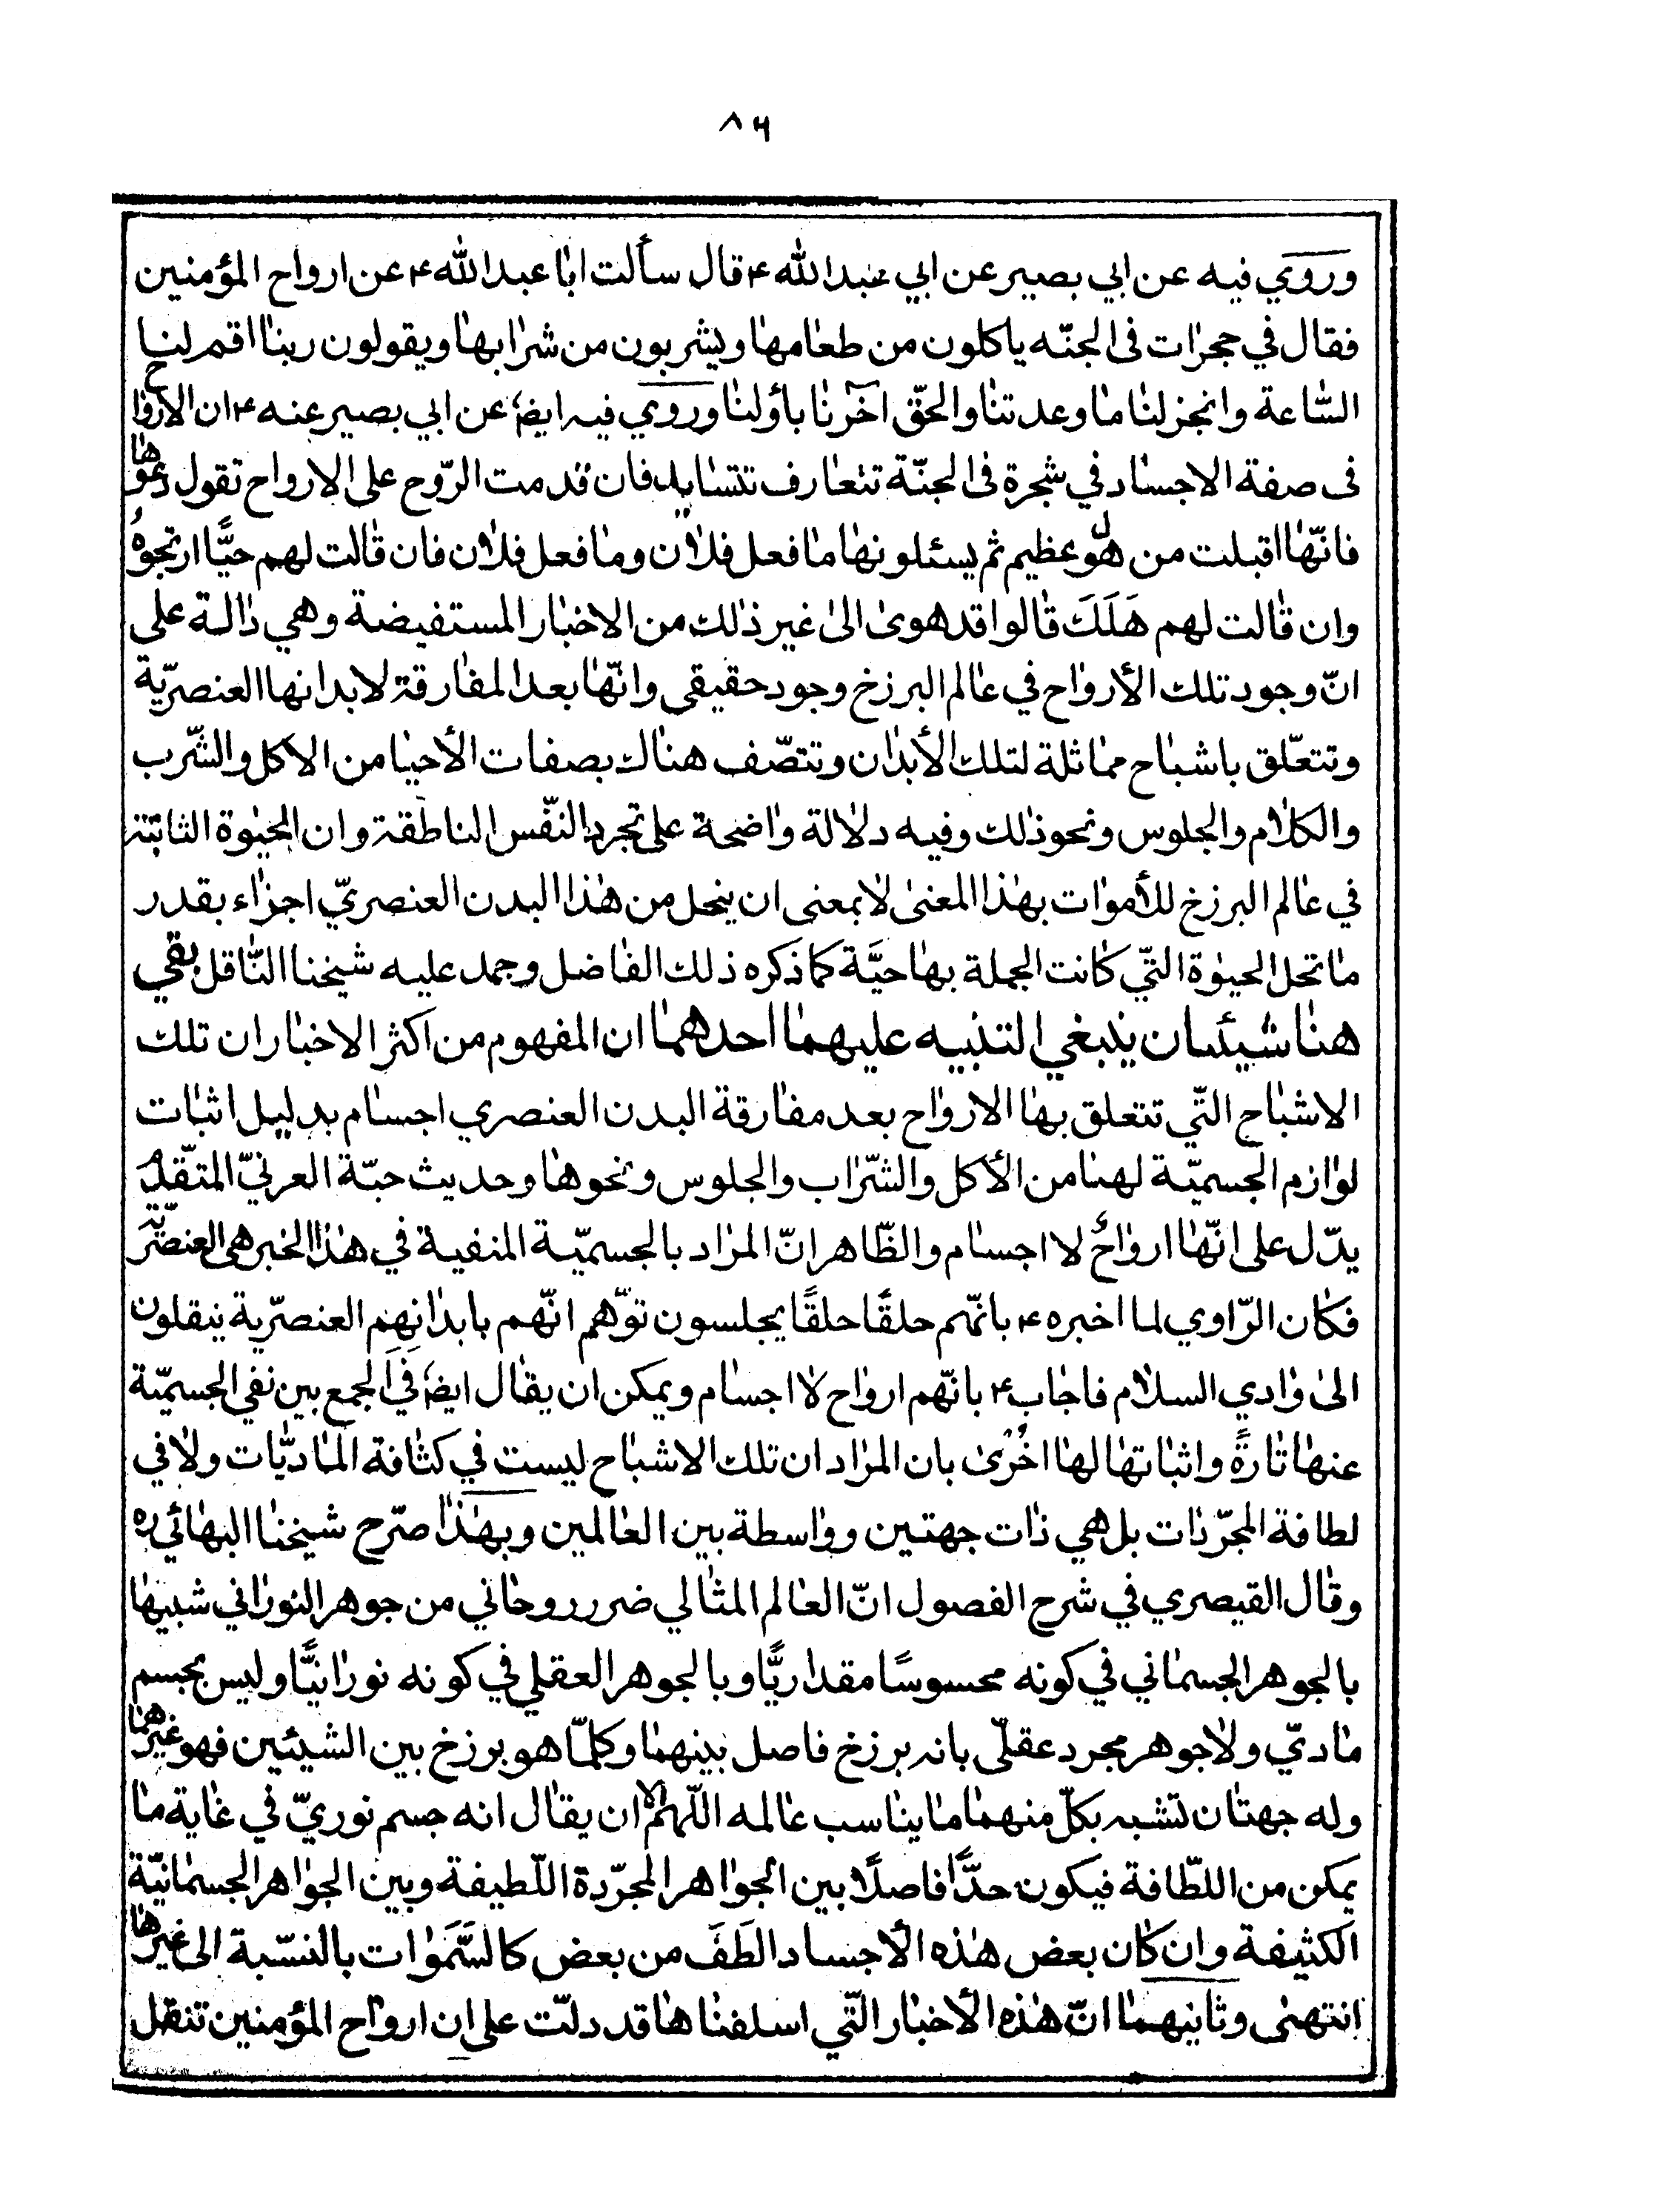 ٨٦
وروي فيه عن ابي بصير عن ابي عبدالله ع قال سألت ابا عبدالله ع عن ارواح المؤمنين
فقال في حجرات في الجنّه ياكلون من طعامها ويشربون من شرابها ويقولون ربنا اقم لنا
السّاعة وانجز لنا ما وعدتنا والحقّ اخرنا بأولنا وروي فيه ايضً عن ابي بصير عنه ع ان الارواح
في صفة الاجساد في شجرة في الجنّة تتعارف تتسايل فان قدمت الرّوح على الارواح تقول دعوها
فانّها اقبلت من هول عظيم ثم يسئلونها ما فعل فلان وما فعل فلان فان قالت لهم حيًّا ارتجوهُ
وان قالت لهم هَلَكَ قالوا قد هوى الى غير ذلك من الاخبار المستفيضة وهي دالة على
انّ وجود تلك الأرواح في عالم البرزخ وجود حقيقي وانّها بعد المفارقة لابدانها العنصريّة
وتتعّلق باشباح مماثلة لتلك الأبدان وتتصّف هناك بصفات الأحيا من الاكل والشّرب
والكلام والجلوس ونحو ذلك وفيه دلالة واضحة على تجرد النّفس الناطقة وان الحيوة الثابتة
في عالم البرزخ للأموات بهذا المعنى لا بمعنى ان ينحل من هذا البدن العنصريّ اجزاء بقدر
ما تحل الحيوة التّي كانت الجملة بها حيَّة كما ذكره ذلك الفاضل وجمد عليه شيخنا النّاقل بقي
هنا شيئان ينبغي التنبيه عليهما احدهما ان المفهوم من اكثر الاخبار ان تلك
الاشباح التّي تتعلق بها الارواح بعد مفارقة البدن العنصري اجسام بدليل اثبات
لوازم الجسميّة لهنا من الأكل والشّراب والجلوس ونحوها وحديث حبّة العرنيّ المتقّدم
يدّل على انّها ارواحٌ لا اجسام والظّاهر انّ المراد بالجسميّة المنفية في هذا الخبر هي العنصّرية
فكان الرّاوي لما اخبره ع بانّهم حلقًا حلقًا يجلسون توّهم انّهم بابدانهم العنصرّية ينقلون
الى وادي السلام فاجاب ع بانّهم ارواح لا اجسام ويمكن ان يقال ايضً في الجمع بين نفي الجسميّة
عنها تارةً واثباتها لها اخُرى بان المراد ان تلك الاشباح ليست في كثافة المادّيات ولا في
لطافة المجرّدات بل هي ذات جهتين وواسطة بين العالمين وبهذا صرّح شيخنا البهائي ره
وقال القيصري في شرح الفصول انّ العالم المثالي ضرر روحاني من جوهر النوراني شبيها
بالجوهر الجسماني في كونه محسوسًا مقداريًّا وبالجوهر العقلي في كونه نورانيًّا وليس بجسم
ماديّ ولا جوهر مجرد عقلّي بانه برزخ فاصل بينهما وكلمّا هو برزخ بين الشيئين فهو غيرهما
وله جهتان تشبه بكلّ منهما ما يناسب عالمه اللّهمّ الا ان يقال انه جسم نوريّ في غاية ما
يمكن من اللطّافة فيكون حدًّا فاصلًا بين الجواهر المجرّدة اللّطيفة وبين الجواهر الجسمانيّة
الكثيفة وان كان بعض هذه الأجساد الطَفَ من بعض كالسَّمَوات بالنسّبة الى غيرها
انتهى وثانيهما انّ هذه الأخبار التّي اسلفناها قد دلّت على ان ارواح المؤمنين تنقل